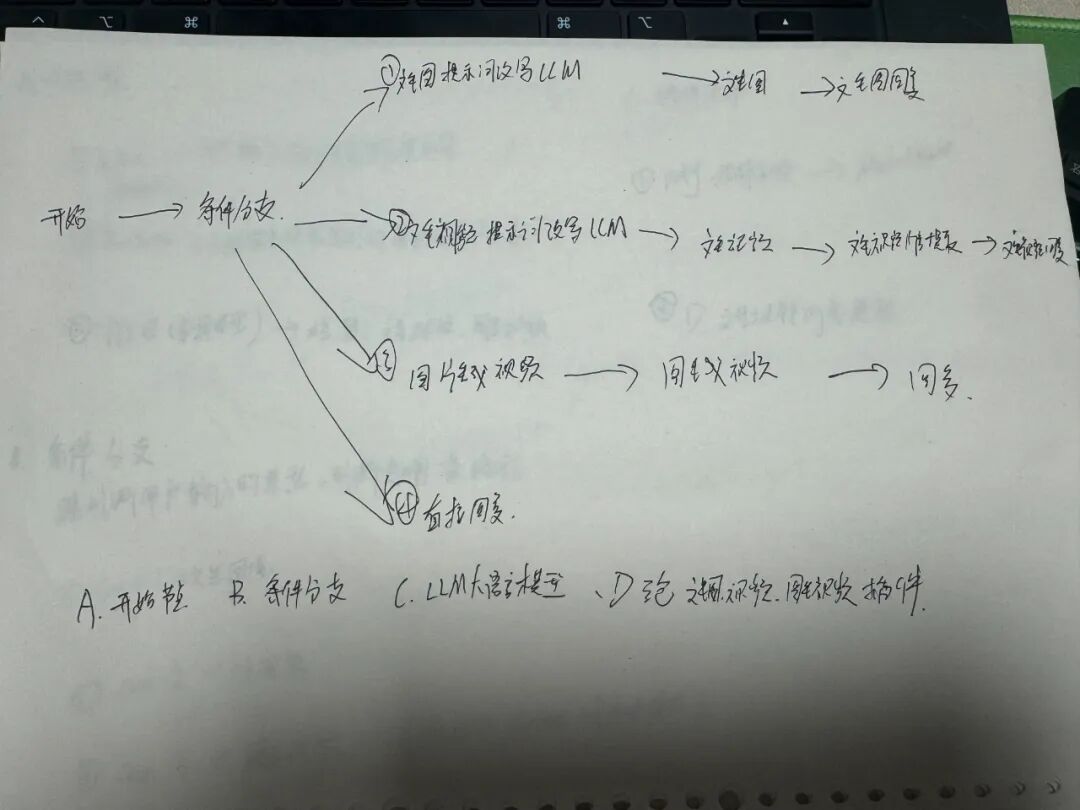 ①文生图提示词改写LLM → 文生图 → 文生图回复
开始 → 条件分支. ②文生视频提示词改写LLM → 文生视频 → 文生视频 提取 → 文生视频回复
③ 图片生成视频 → 图生成视频 → 回复.
④ 直接回复.
A. 开始节点 B. 条件分支 C. LLM大语言模型、D 文生图.视频.图生视频